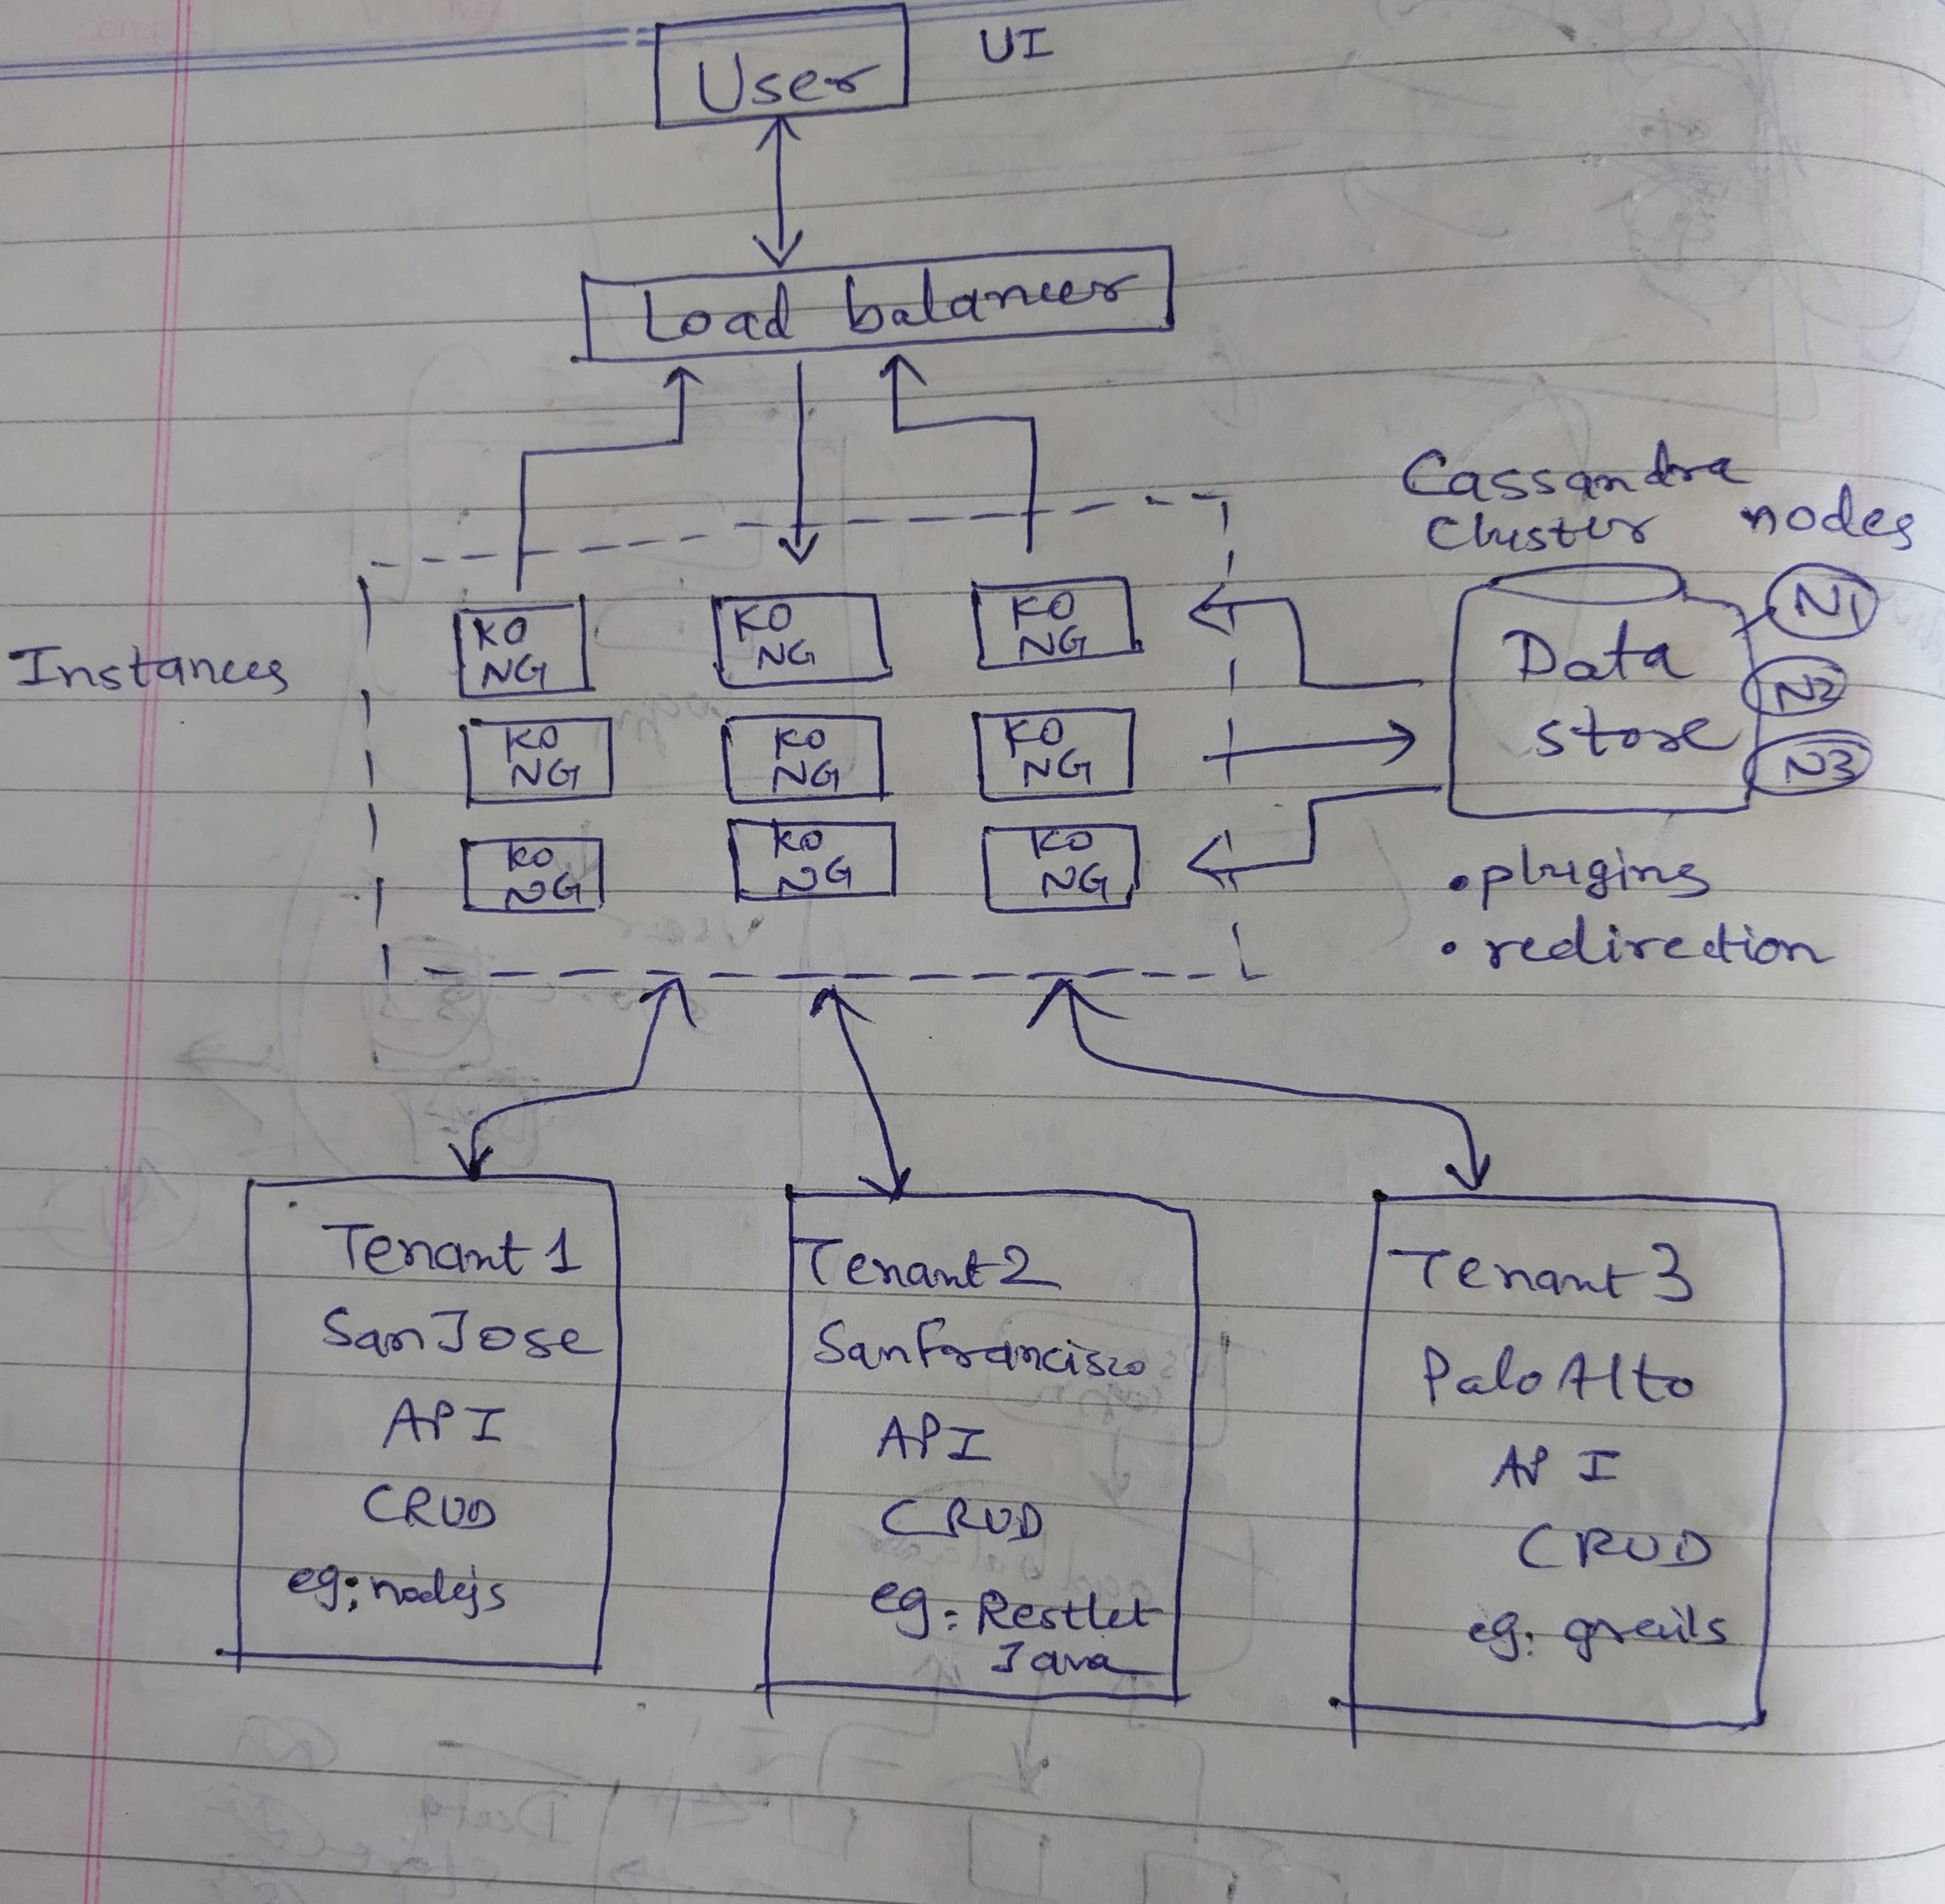 User
UI
Load balancer
Cassandra
Cluster nodes
Instances
KO
NG
KO
NG
KO
NG
Data
store
N1
N2
N3
KO
NG
KO
NG
KO
NG
KO
NG
KO
NG
KO
NG
• plugins
• redirection
Tenant 1
San Jose
API
CRUD
eg: nodejs
Tenant 2
San Francisco
API
CRUD
eg: Restlet
Java
Tenant 3
Palo Alto
API
CRUD
eg: grails